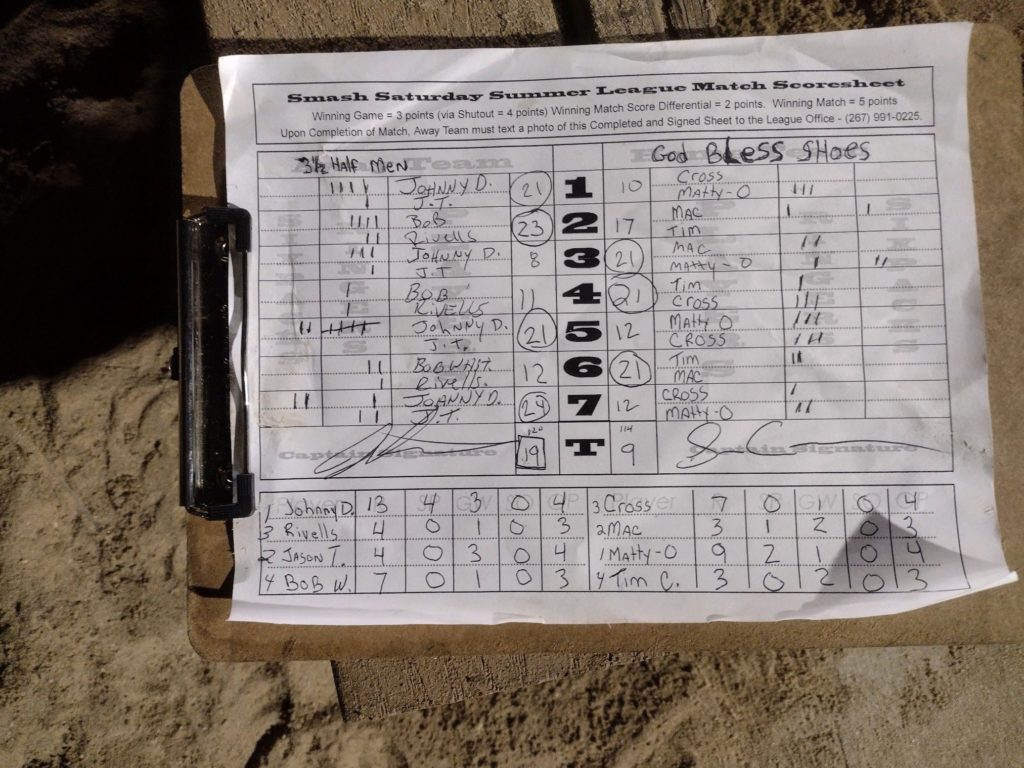 Smash Saturday Summer League Match Scoresheet
Winning Game = 3 points (via Shutout = 4 points) Winning Match Score Differential = 2 points. Winning Match = 5 points
Upon Completion of Match, Away Team must text a photo of this Completed and Signed Sheet to the League Office - (267) 991-0225.
3½ Half Men God Bless Shoes
Johnny D. 21 1 10 Cross
J.T. Matty-O
Bob 23 2 17 Mac
Rivells Tim
Johnny D. 8 3 21 Mac
J.T Matty-O
Bob 11 4 21 Tim
Rivells Cross
Johnny D. 21 5 12 Matty O
J.T. Cross
Bob Whit. 12 6 21 Tim
Rivells. Mac
Johnny D. 24 7 12 Cross
J.T. Matty-O
120 114
Captain Signature 19 T 9 Captain Signature
Player GW GP Player SP GW SO GP
1 Johnny D. 13 4 3 0 4 3 Cross 7 0 1 0 4
3 Rivells 4 0 1 0 3 2 Mac 3 1 2 0 3
2 Jason T. 4 0 3 0 4 1 Matty-O 9 2 1 0 4
4 Bob W. 7 0 1 0 3 4 Tim C. 3 0 2 0 3